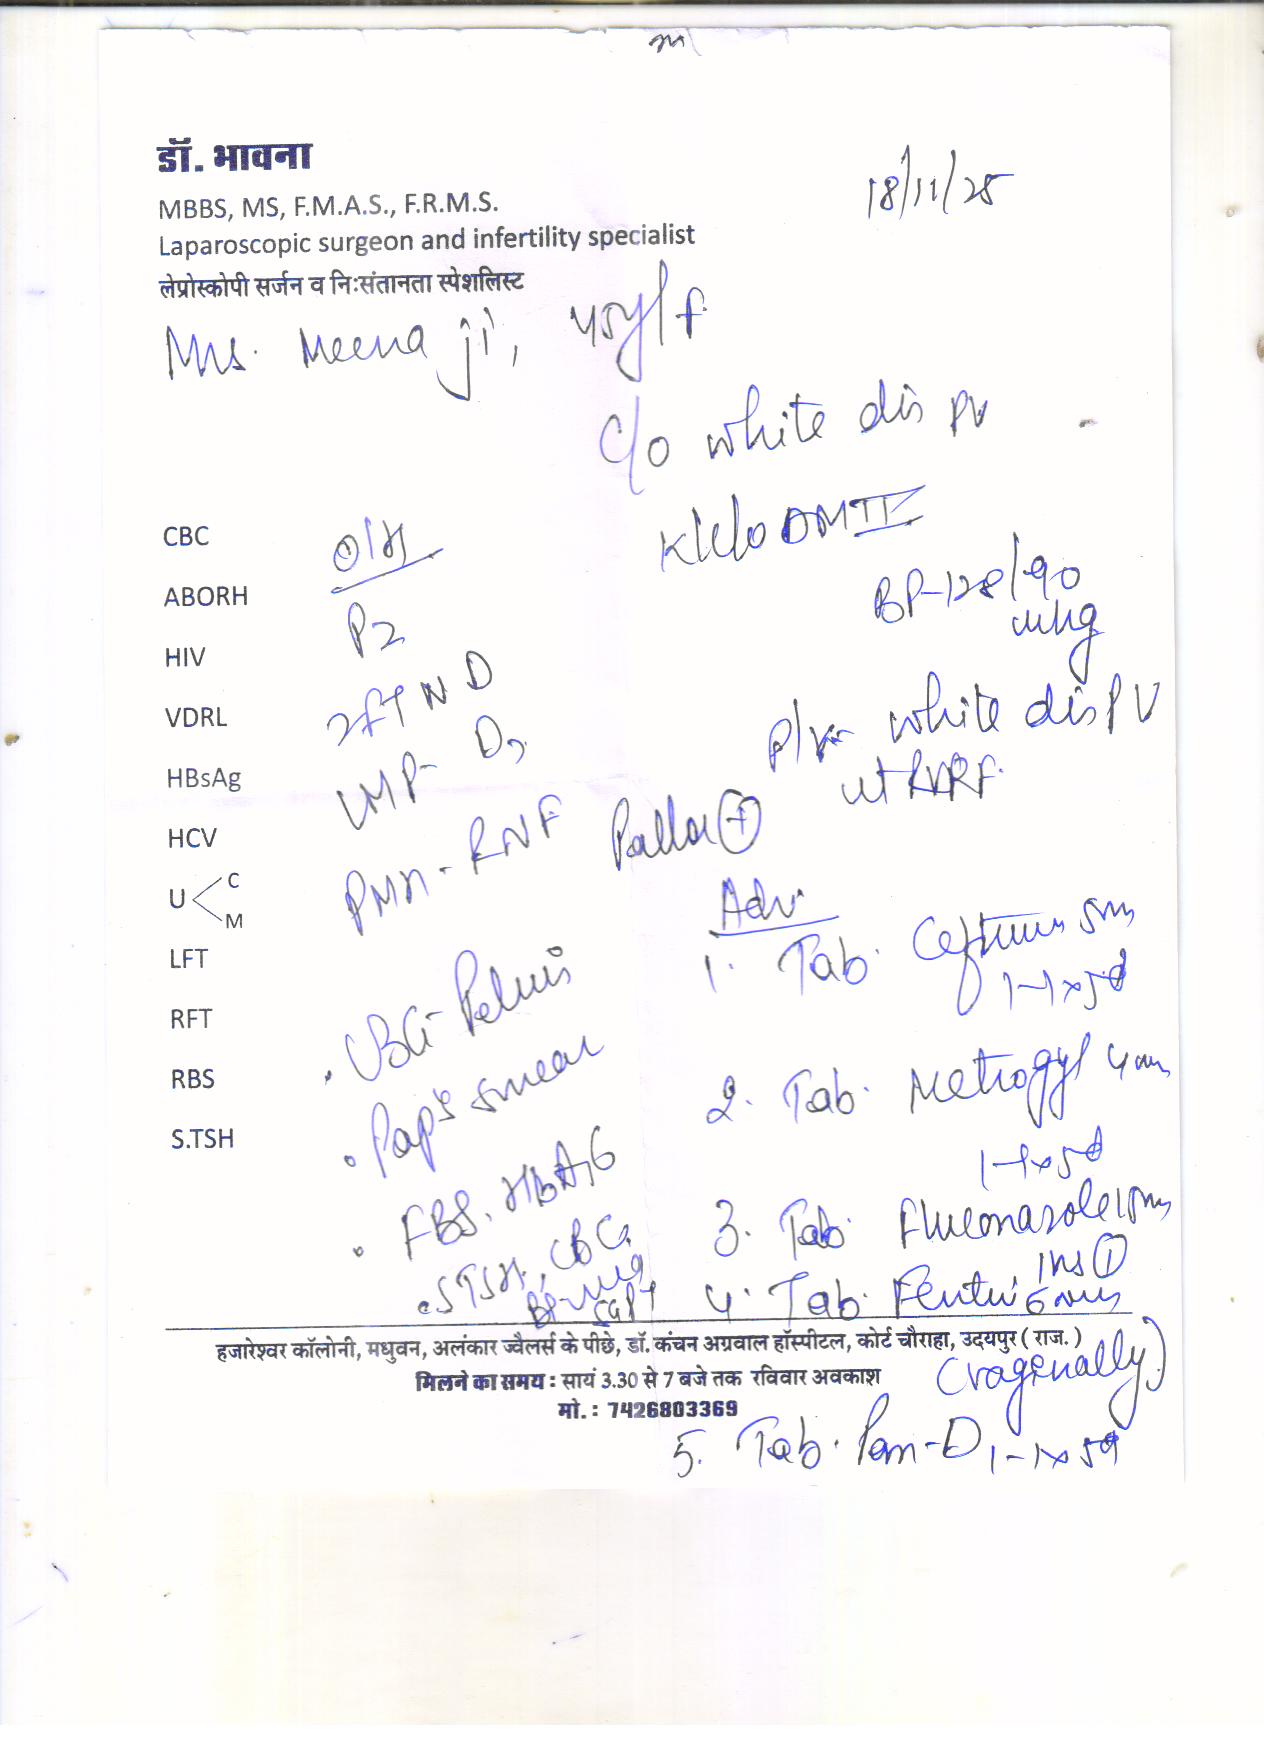 डॉ. भावना
MBBS, MS, F.M.A.S., F.R.M.S.
18/11/25
Laparoscopic surgeon and infertility specialist
लेप्रोस्कोपी सर्जन व निःसंतानता स्पेशलिस्ट
Mrs. Meena ji, 45y/f
c/o white dis PV
K/c/o DM II
BP-128/90
mhg
CBC
ABORH
HIV
VDRL
HBsAg
HCV
U C
M
LFT
RFT
RBS
S.TSH
O/H
P2
2FTND
LMP-
PMH - RNF
P/V- white dis PV
ut RVRF
Pallor +
USG- Pelvis
Pap's smear
FBS, HBA1C
S TSH, CBC
Adv
1. Tab.
1-1x5d
2. Tab. Metrogyl 400
1-1x5d
3. Tab. Fluconazole 150
4. Tab.
(vagenally)
5. Tab. Pan-D 1-1x5d
हजारेश्वर कॉलोनी, मधुवन, अलंकार ज्वैलर्स के पीछे, डॉ. कंचन अग्रवाल हॉस्पीटल, कोर्ट चौराहा, उदयपुर ( राज. )
मिलने का समय : सायं 3.30 से 7 बजे तक रविवार अवकाश
मो. : 7426803369